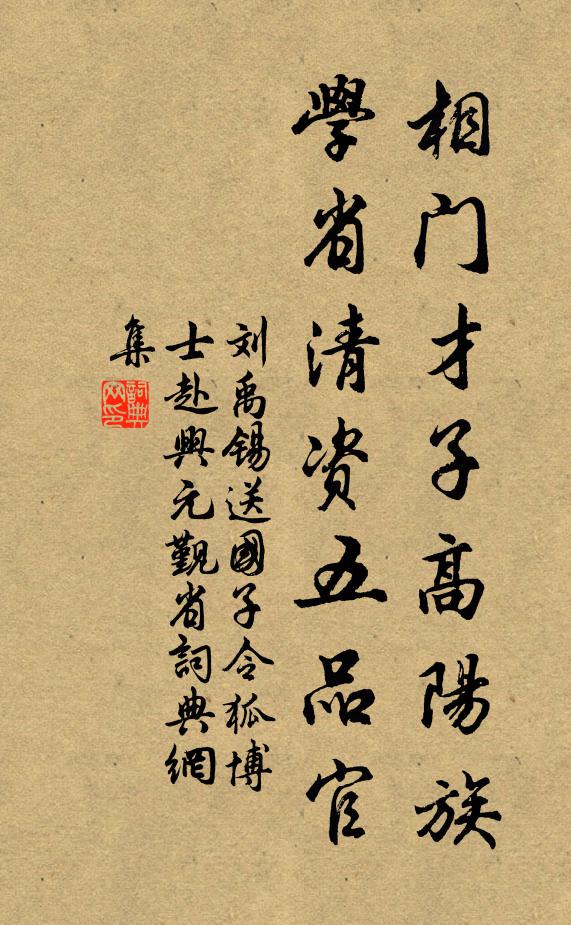 相門才子高陽族
學省清资五品官
刘禹锡送國子令狐博
士赴興元覲省詞典網
集
詞典
网印